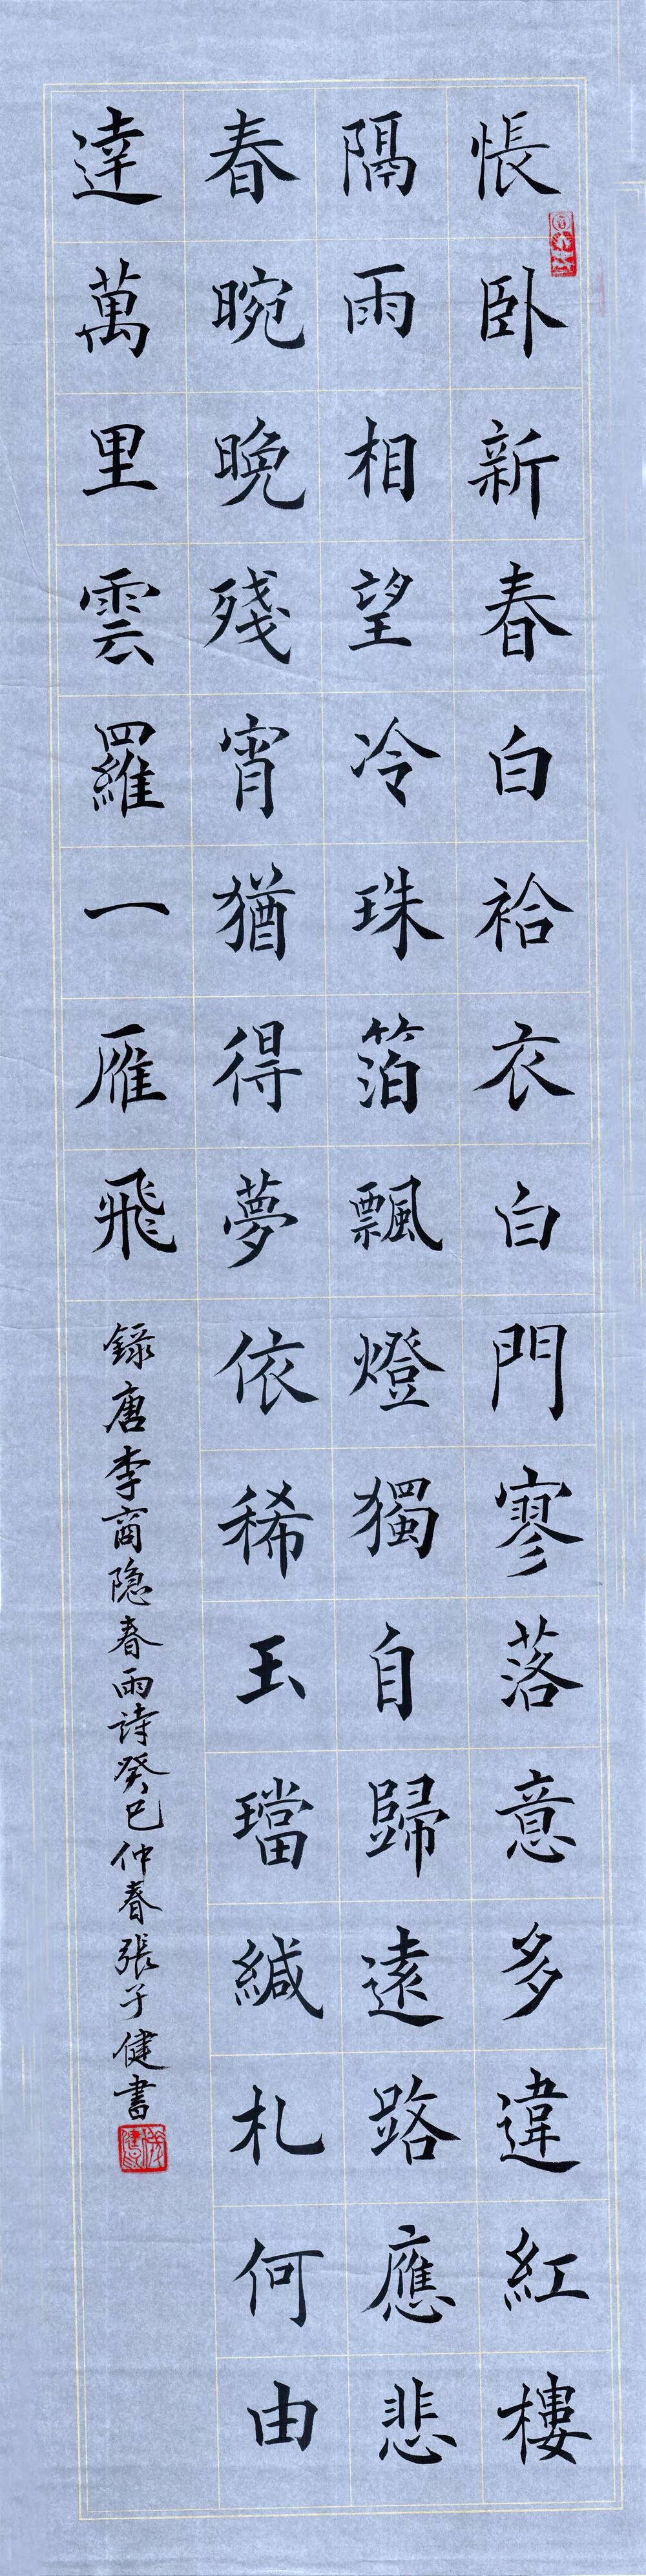 悵卧新春白袷衣白門寥落意多違紅樓
隔雨相望冷珠箔飄燈獨自歸遠路應悲
春晼晚殘宵猶得夢依稀玉璫緘札何由
達萬里雲羅一雁飛
錄唐李商隐春雨詩癸巳仲春張子健書